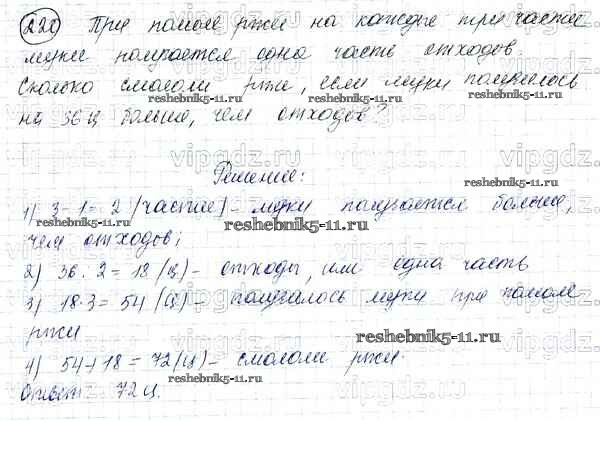 220 При помоле ржи на каждые три части
муки получается одна часть отходов.
Сколько смололи ржи, если муки получилось
на 36 ц больше, чем отходов?
Решение:
1) 3-1=2 (части) - муки получается больше,
чем отходов;
2) 36:2=18 (ц) - отходы, или одна часть
3) 18·3=54 (ц) - получалось муки при помоле
ржи
4) 54+18=72 (ц) - смололи ржи.
Ответ: 72 ц.
reshebnik5-11.ru
reshebnik5-11.ru
reshebnik5-11.ru
reshebnik5-11.ru
reshebnik5-11.ru
reshebnik5-11.ru
vipgdz.ru